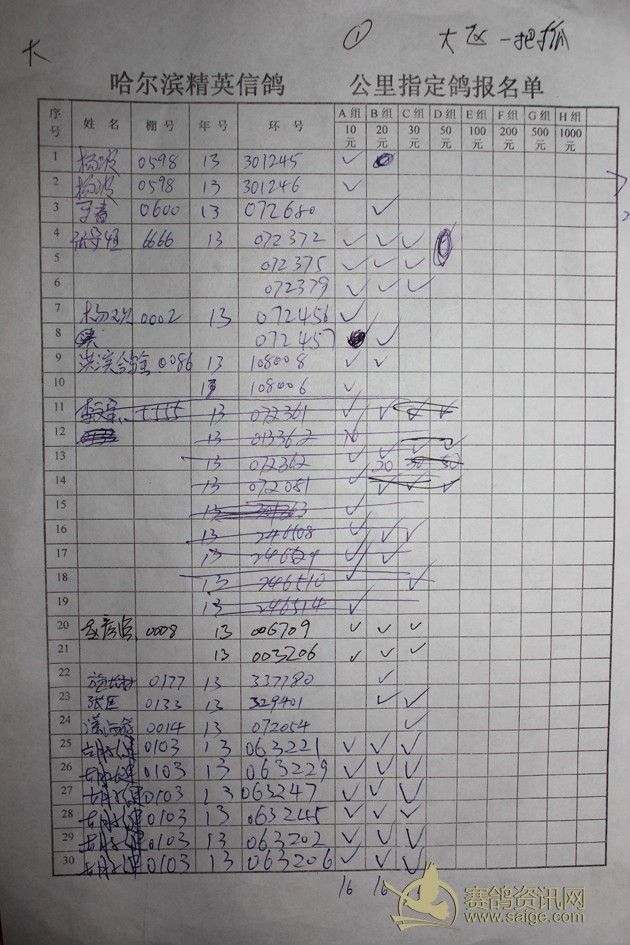 大 ① 大区 一把抓
哈尔滨精英信鸽 公里指定鸽报名单
序号 姓名 棚号 年号 环号 A组 10元 B组 20元 C组 30元 D组 50元 E组 100元 F组 200元 G组 500元 H组 1000元
1 杨波 0598 13 301245 ✓
2 杨波 0598 13 301246 ✓
3 0600 13 072680 ✓
4 6666 13 072372 ✓ ✓ ✓
5 072375 ✓ ✓ ✓
6 072379 ✓ ✓ ✓
7 0002 13 072456 ✓
8 072457 ✓
9 0086 13 108008 ✓ ✓
10 13 108006 ✓
11 5555 13 072361 ✓ ✓ ✓ ✓
12 13 013362
13 13 072362 ✓ ✓ ✓ ✓ 20 30 50
14 13 072081 ✓ ✓ ✓ ✓
15 13 ✓
16 13 246508 ✓ ✓ ✓
17 13 ✓ ✓
18 13 246510 ✓ ✓
19 13 246514 ✓
20 0008 13 006709 ✓ ✓ ✓
21 13 003206 ✓ ✓ ✓
22 0177 13 337780 ✓
23 张匡 0133 13 329401 ✓ ✓
24 0014 13 072054 ✓
25 0103 13 063221 ✓ ✓ ✓
26 0103 13 063229 ✓ ✓ ✓
27 0103 13 063247 ✓ ✓ ✓
28 0103 13 063245 ✓ ✓ ✓
29 0103 13 063202 ✓ ✓ ✓
30 0103 13 063206 ✓ ✓ ✓
16 16
赛鸽资讯网
www.saige.com